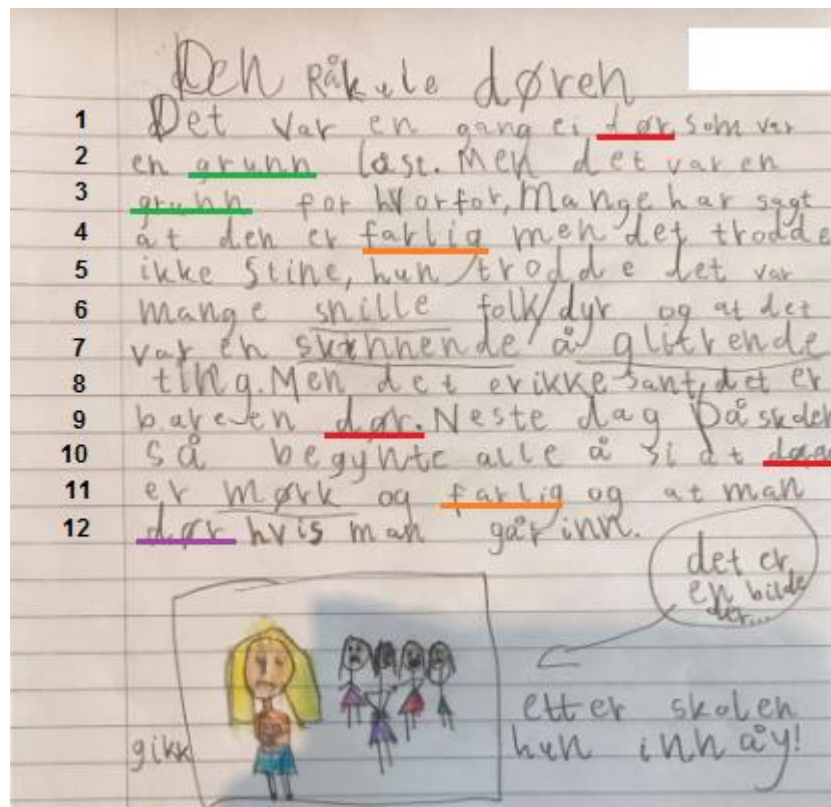 Den Råkule døren
1 Det var en gang ei dør som var
2 en grunn Men det var en
3 grunn for hvorfor, Mange har sagt
4 at den er farlig men det trodde
5 ikke Stine, hun trodde det var
6 mange snille folk/dyr og at det
7 var en skinnende å glitrende
8 ting. Men det er ikke sant, det er
9 bare en dør. Neste dag på skolen
10 så begynte alle å si at
11 er mørk og farlig og at man
12 dør hvis man går inn.
det er
en bilde
der...
etter skolen
gikk hun inn åy!